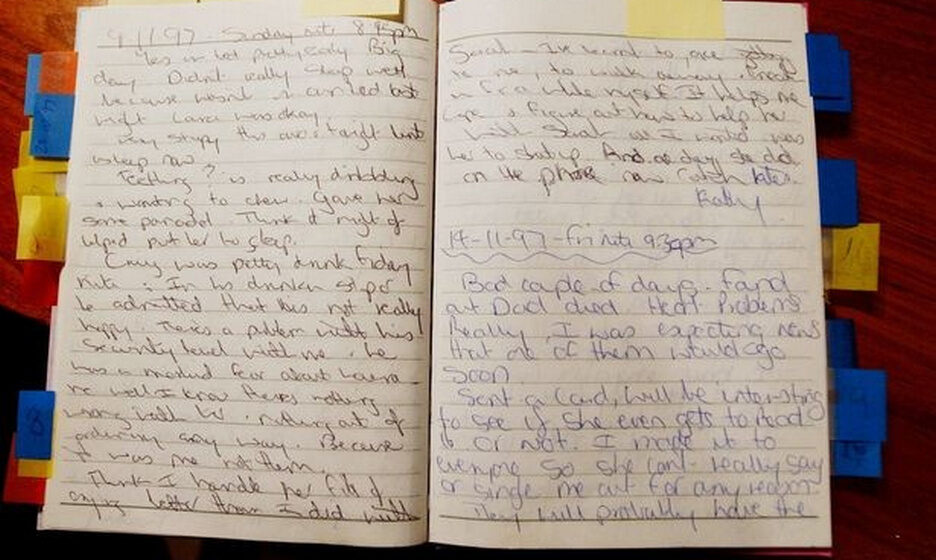 9-11-97. Sunday nite 8.45pm
Yes in bed pretty early. Big
day. Didn't really sleep well
because wasn't in our bed last
night Laura was okay.
Very stropy this arvo & tonight but
asleep now
Teething? is really dribbling
& wanting to chew. Gave her
some panadol. Think it might of
helped put her to sleep.
Craig was pretty drunk Friday
nite & in his drunken
he admitted that he's not really
happy. There's a problem with his
security level with me. he
has a fear about Laura
me well I know there's nothing
wrong with. nothing out of
ordinary any way. Because
it was me not them.
Think I handle her fits of
crying better than I did with
Sarah - I've learnt to
to me, to walk away & breath
in for a while myself. It helps me
cope & figure out how to help her
With Sarah all I wanted was
her to shut up. And one day she did.
on the phone now. Catch later.
Kathy
14-11-97 - Fri nite 9.30pm
Bad couple of days. Found
out Dad died. Heart Problems
Really, I was expecting news
that one of them would go
soon.
Sent a card, will be interesting
to see if she even gets to read
it or not. I made it to
everyone so she can't really say
or single me out for any reason
They will probably have the